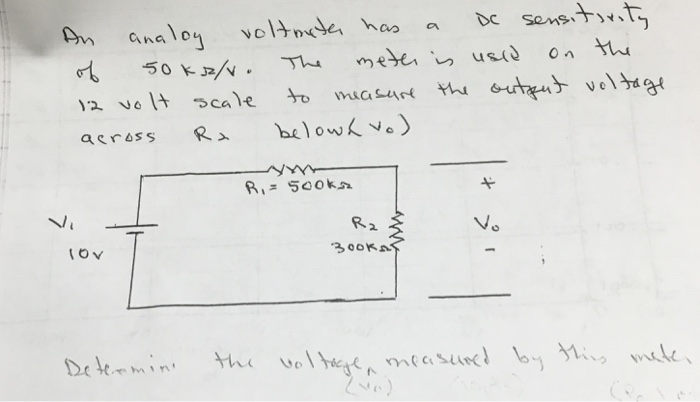 An analog voltmeter has a DC sensitivity
of 50 KΩ/V. The meter is used on the
12 volt scale to measure the output voltage
across R2 below (Vo)
R1 = 500KΩ
+
V1
R2
Vo
10V
300KΩ
-
Determine the voltage measured by this meter